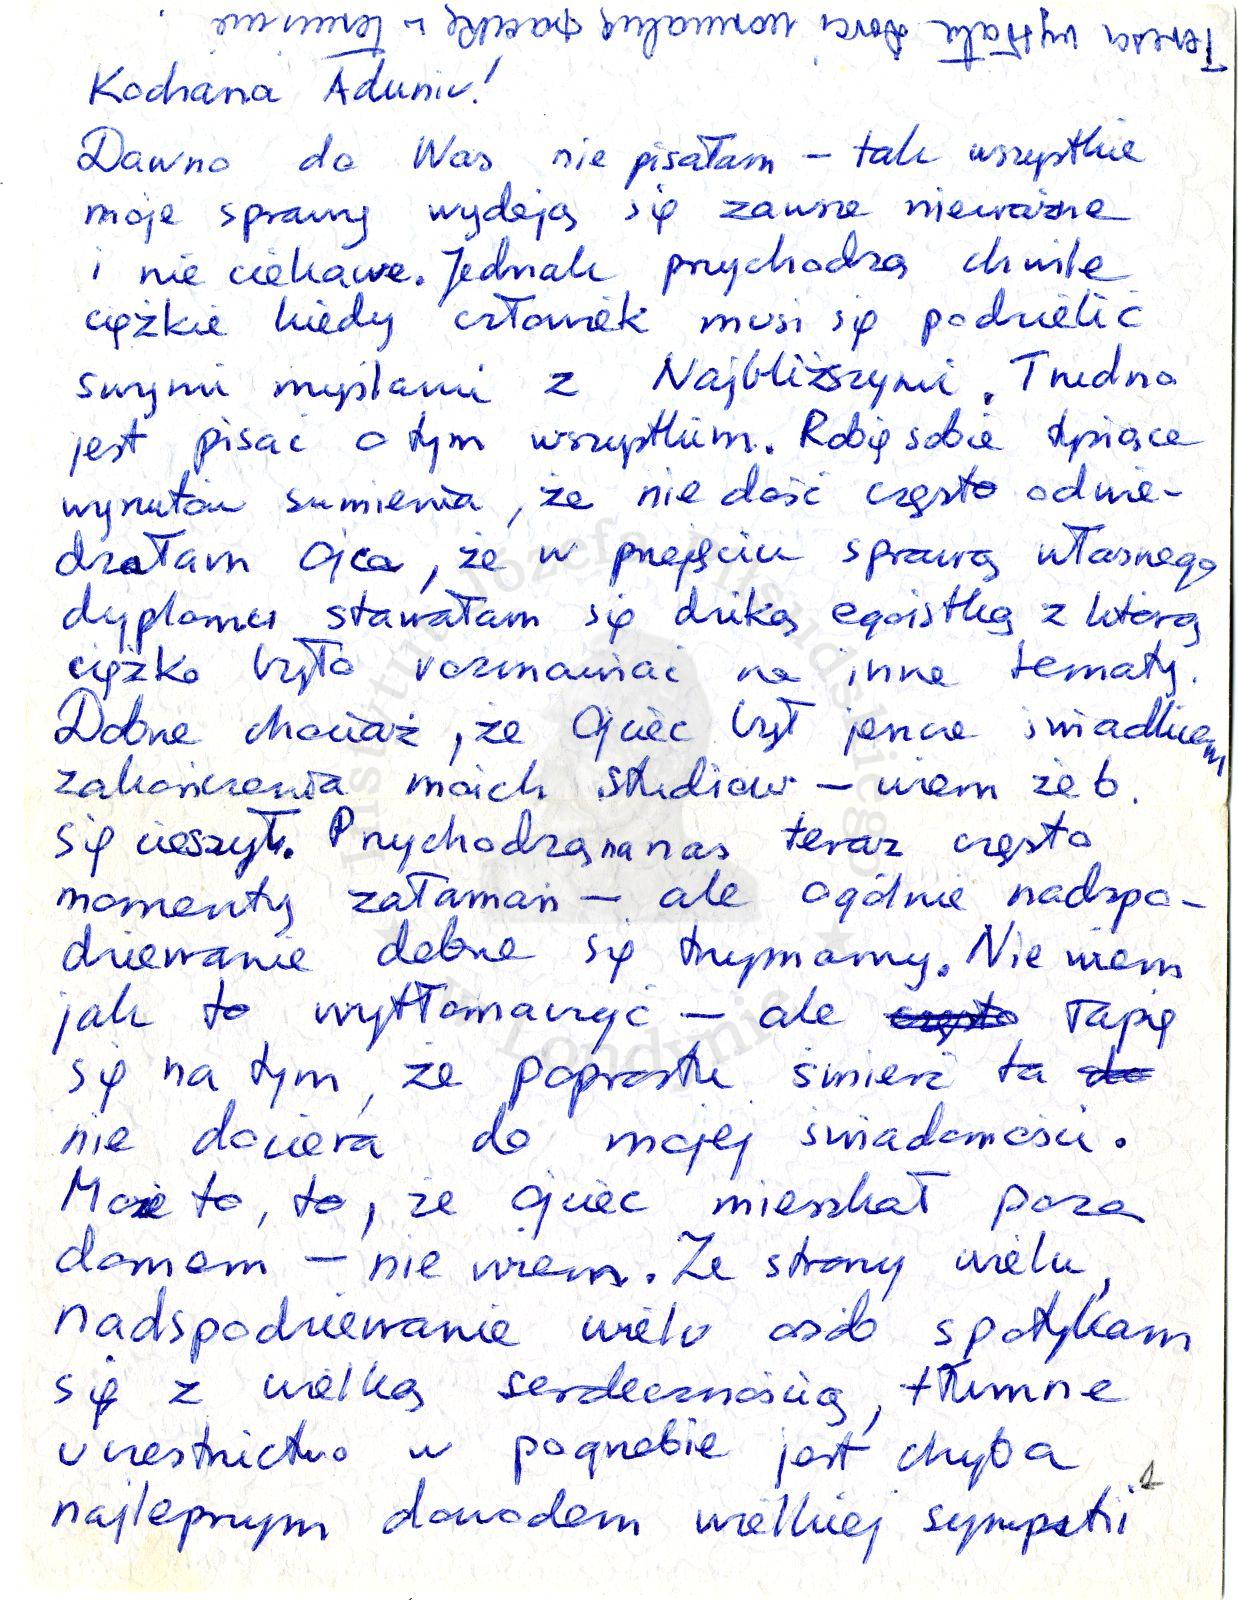 Teresa wysłała Dorci normalną paczkę w terminie.
Kochana Aduniu!
Dawno do Was nie pisałam – tak wszystkie
moje sprawy wydają się zawsze nieważne
i nie ciekawe. Jednak przychodzą chwile
ciężkie kiedy człowiek musi się podzielić
swymi myślami z Najbliższymi. Trudno
jest pisać o tym wszystkim. Robię sobie tysiące
wyrzutów sumienia, że nie dość często odwie-
dzałam Ojca, że w przejęciu sprawą własnego
dyplomu stawałam się dziką egoistką z którą
ciężko było rozmawiać na inne tematy.
Dobrze chociaż, że Ojciec był jeszcze świadkiem
zakończenia moich studiów – wiem że b.
się cieszył. Przychodzą na nas teraz często
momenty załamań – ale ogólnie nadspo-
dziewanie dobrze się trzymamy. Nie wiem
jak to wytłomaczyć – ale często łapię
się na tym, że poprostu śmierć ta do
nie dociera do mojej świadomości.
Może to, to, że Ojciec mieszkał poza
domem – nie wiem. Ze strony wielu,
nadspodziewanie wielu osób spotykam
się z wielką serdecznością, tłumne
uczestnictwo w pogrzebie jest chyba
najlepszym dowodem wielkiej sympatii
1
Instytut Józefa Piłsudskiego
w Londynie